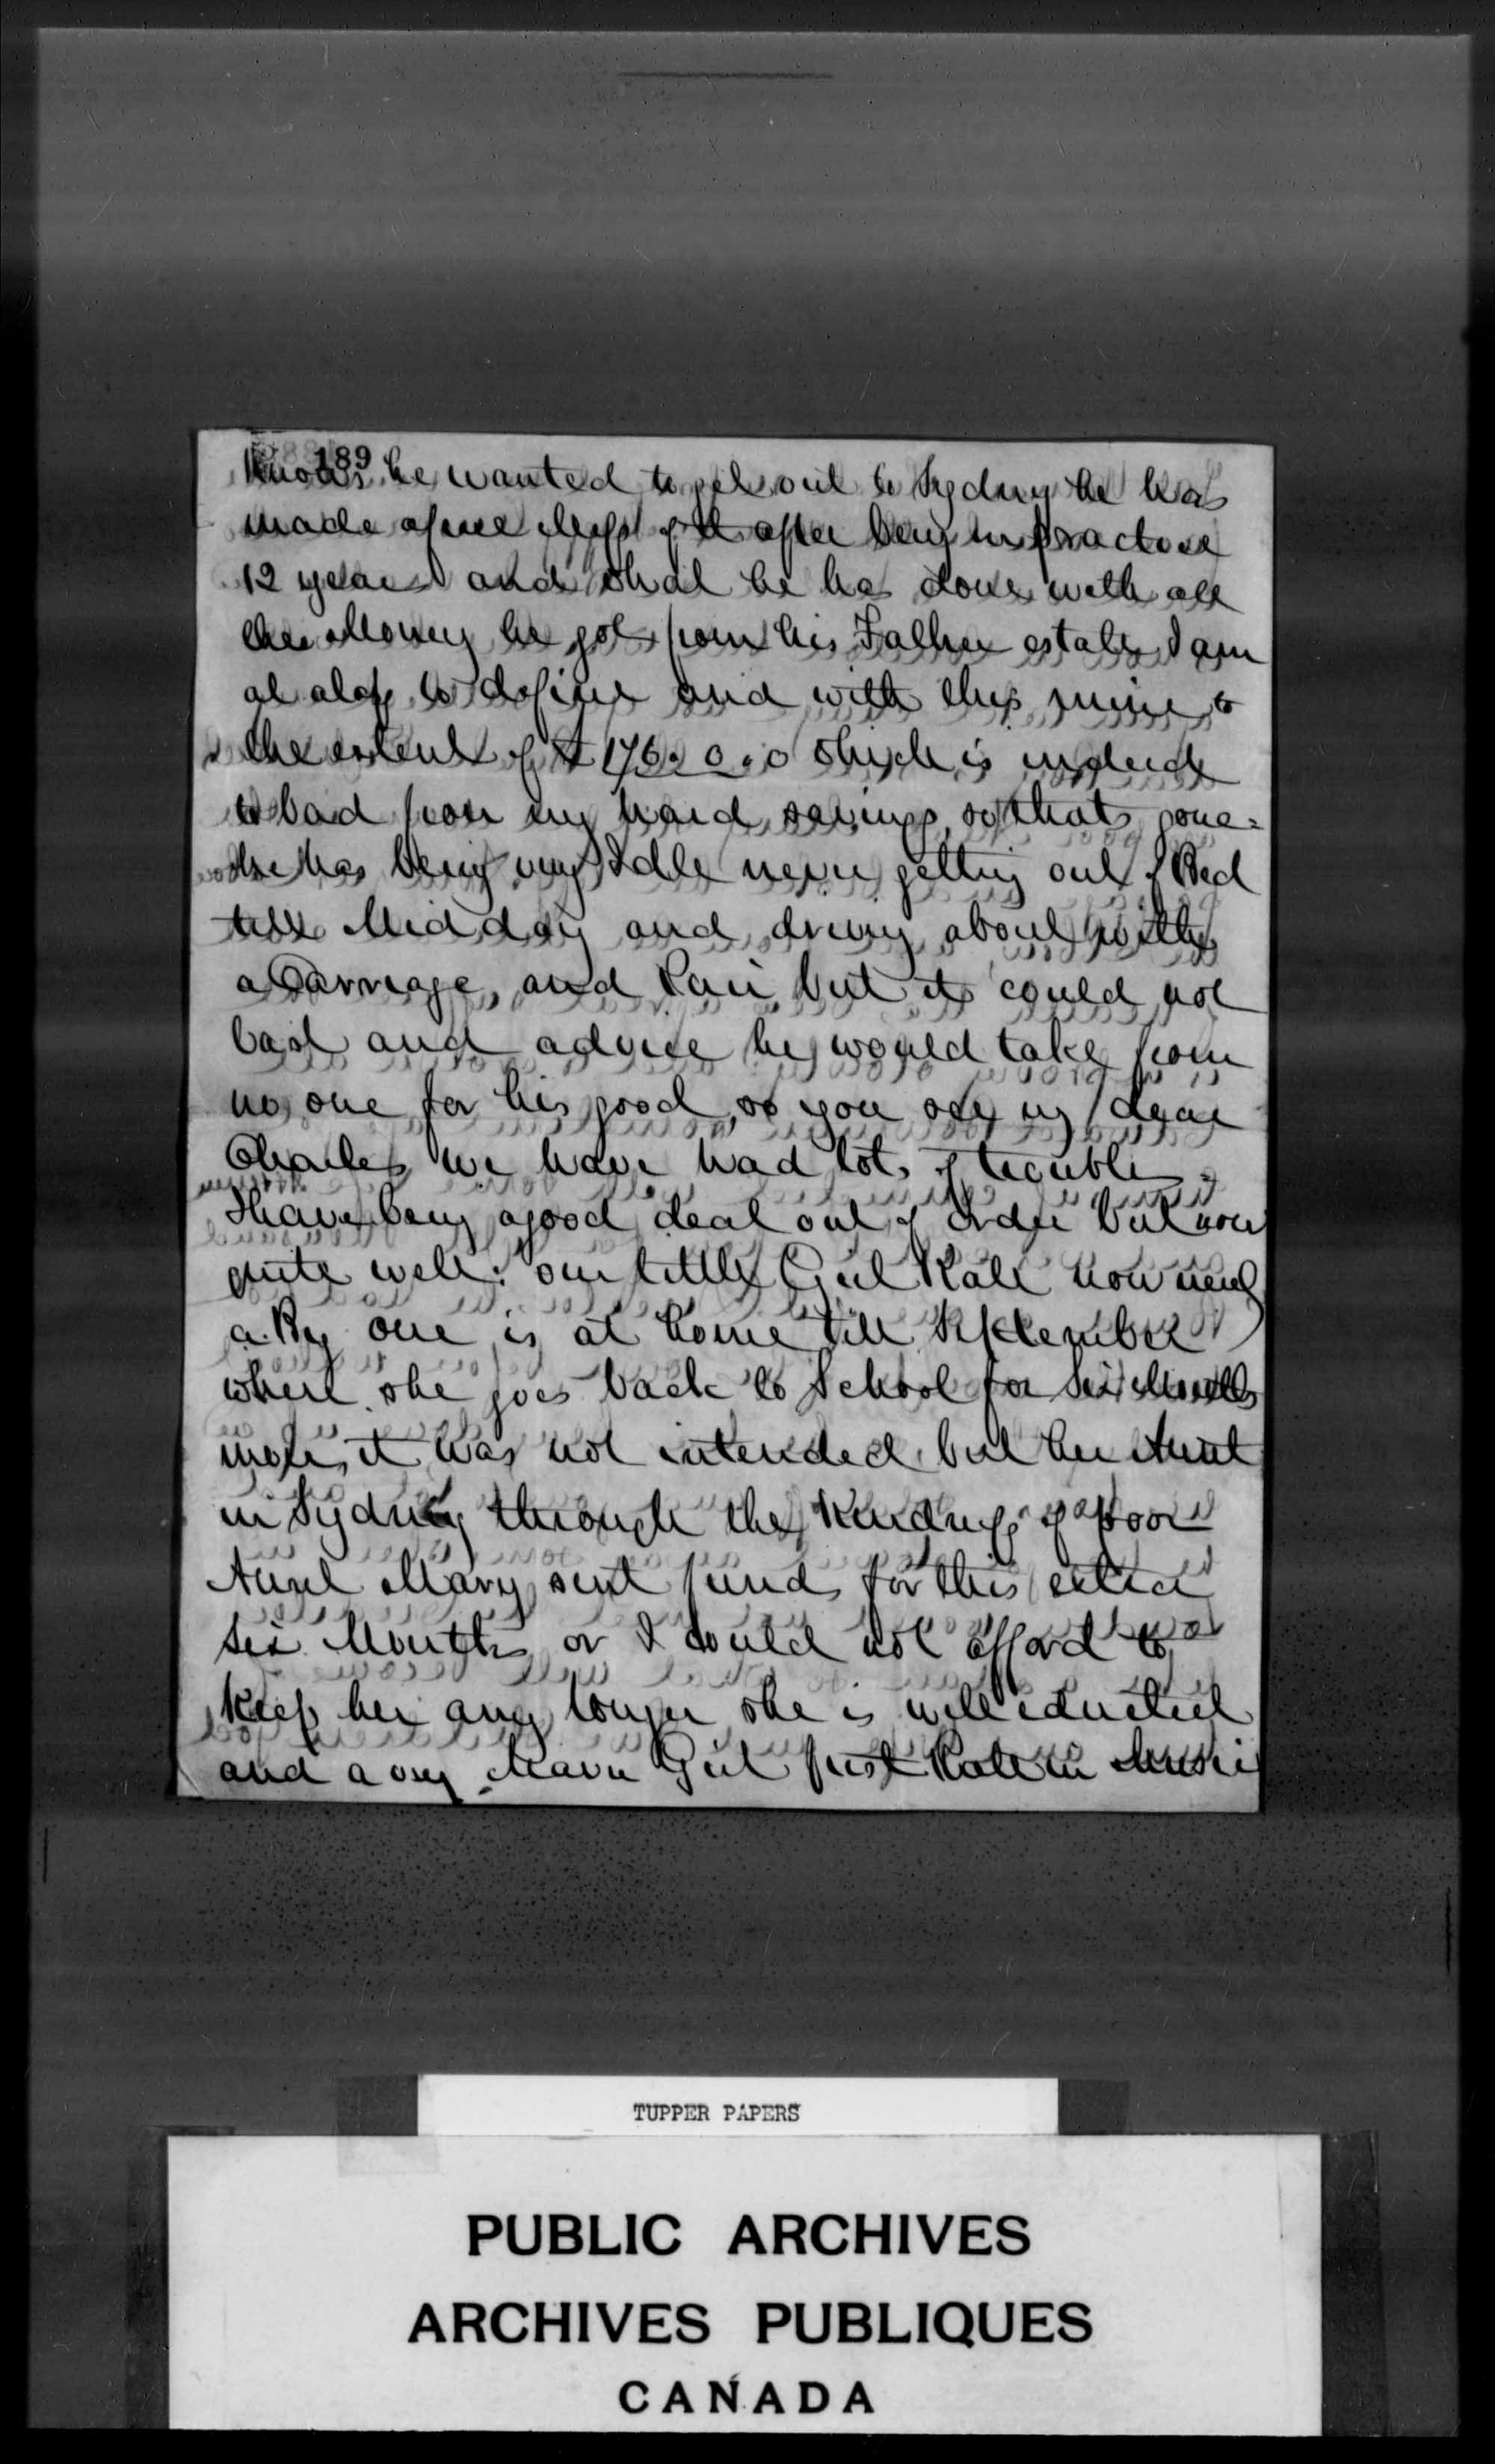 189
Knows he wanted to get out to Sydney he has
made a fine Mess of it after being in practice
12 years and what he has done with all
the Money he got from his Father estate I am
at a loss to define and with this mine to
the extent of £176.0.0 which is indeed
to bad from my hard savings, so that's gone =
he has being very Idle never getting out of Bed
till Mid day and driving about with
a Carriage, and Pair but it could not
last and advice he would take from
no one for his good, so you see my dear
Charles we have had lots of trouble.
I have being a good deal out of order but now
quite well: our little Girl Kate now nearly
a Big one is at home till September
when she goes back to School for Six Months
more, it was not intended but her Aunt
in Sydney through the Kindness of poor
Aunt Mary sent funds for this extra
Six Months or I could not afford to
Keep her any longer she is well educated
and a very Girl first Rate in Music
TUPPER PAPERS
PUBLIC ARCHIVES
ARCHIVES PUBLIQUES
CANADA